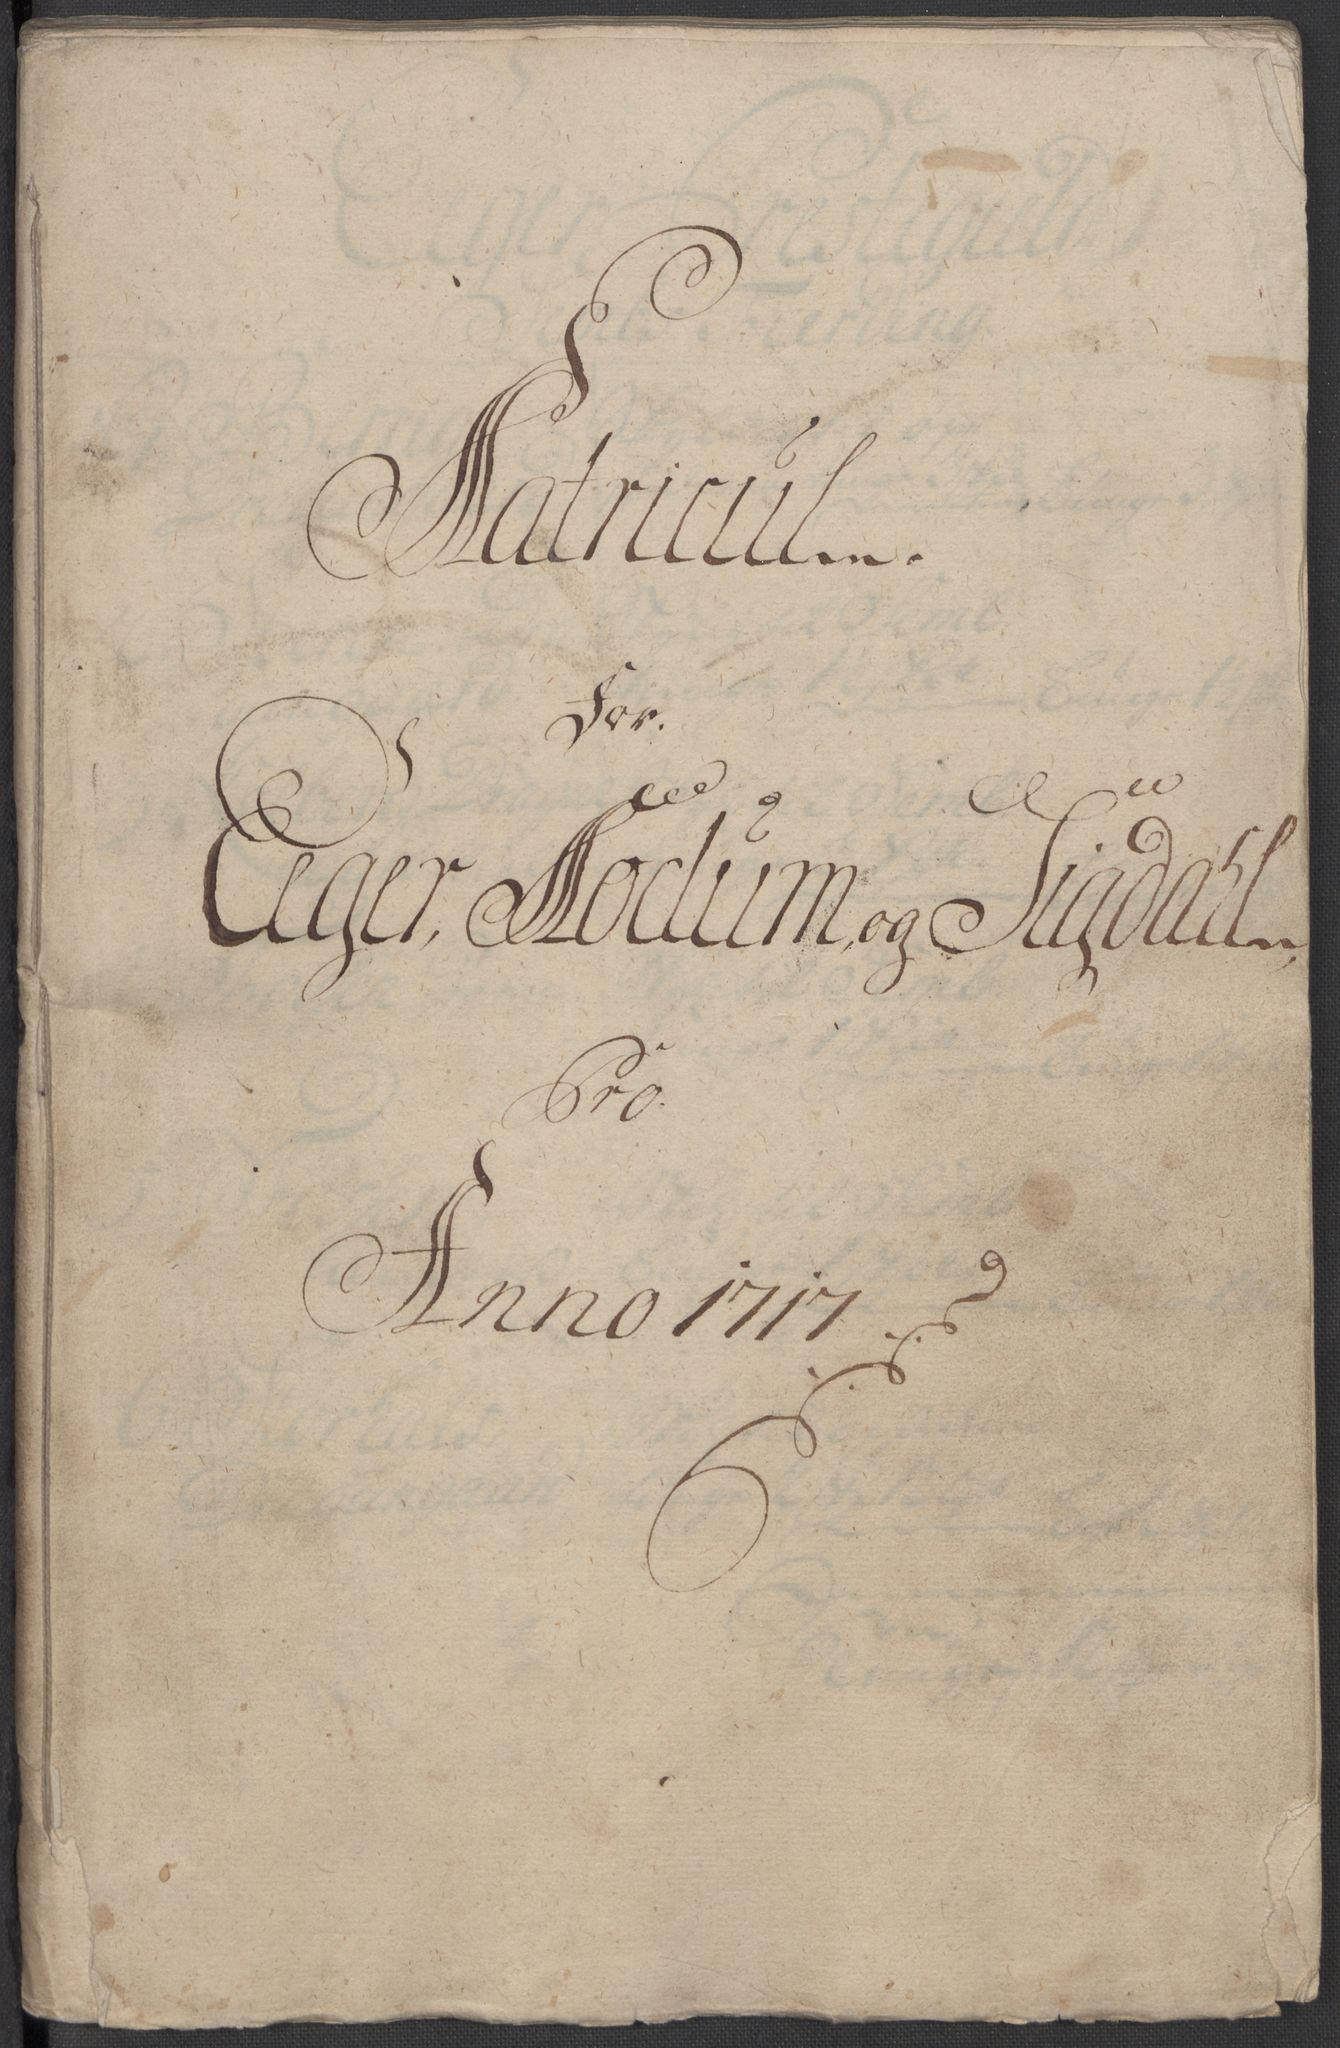 Matricul.
For.
Eger, Modum, og Sigdahl,
Pro.
Anno 1717